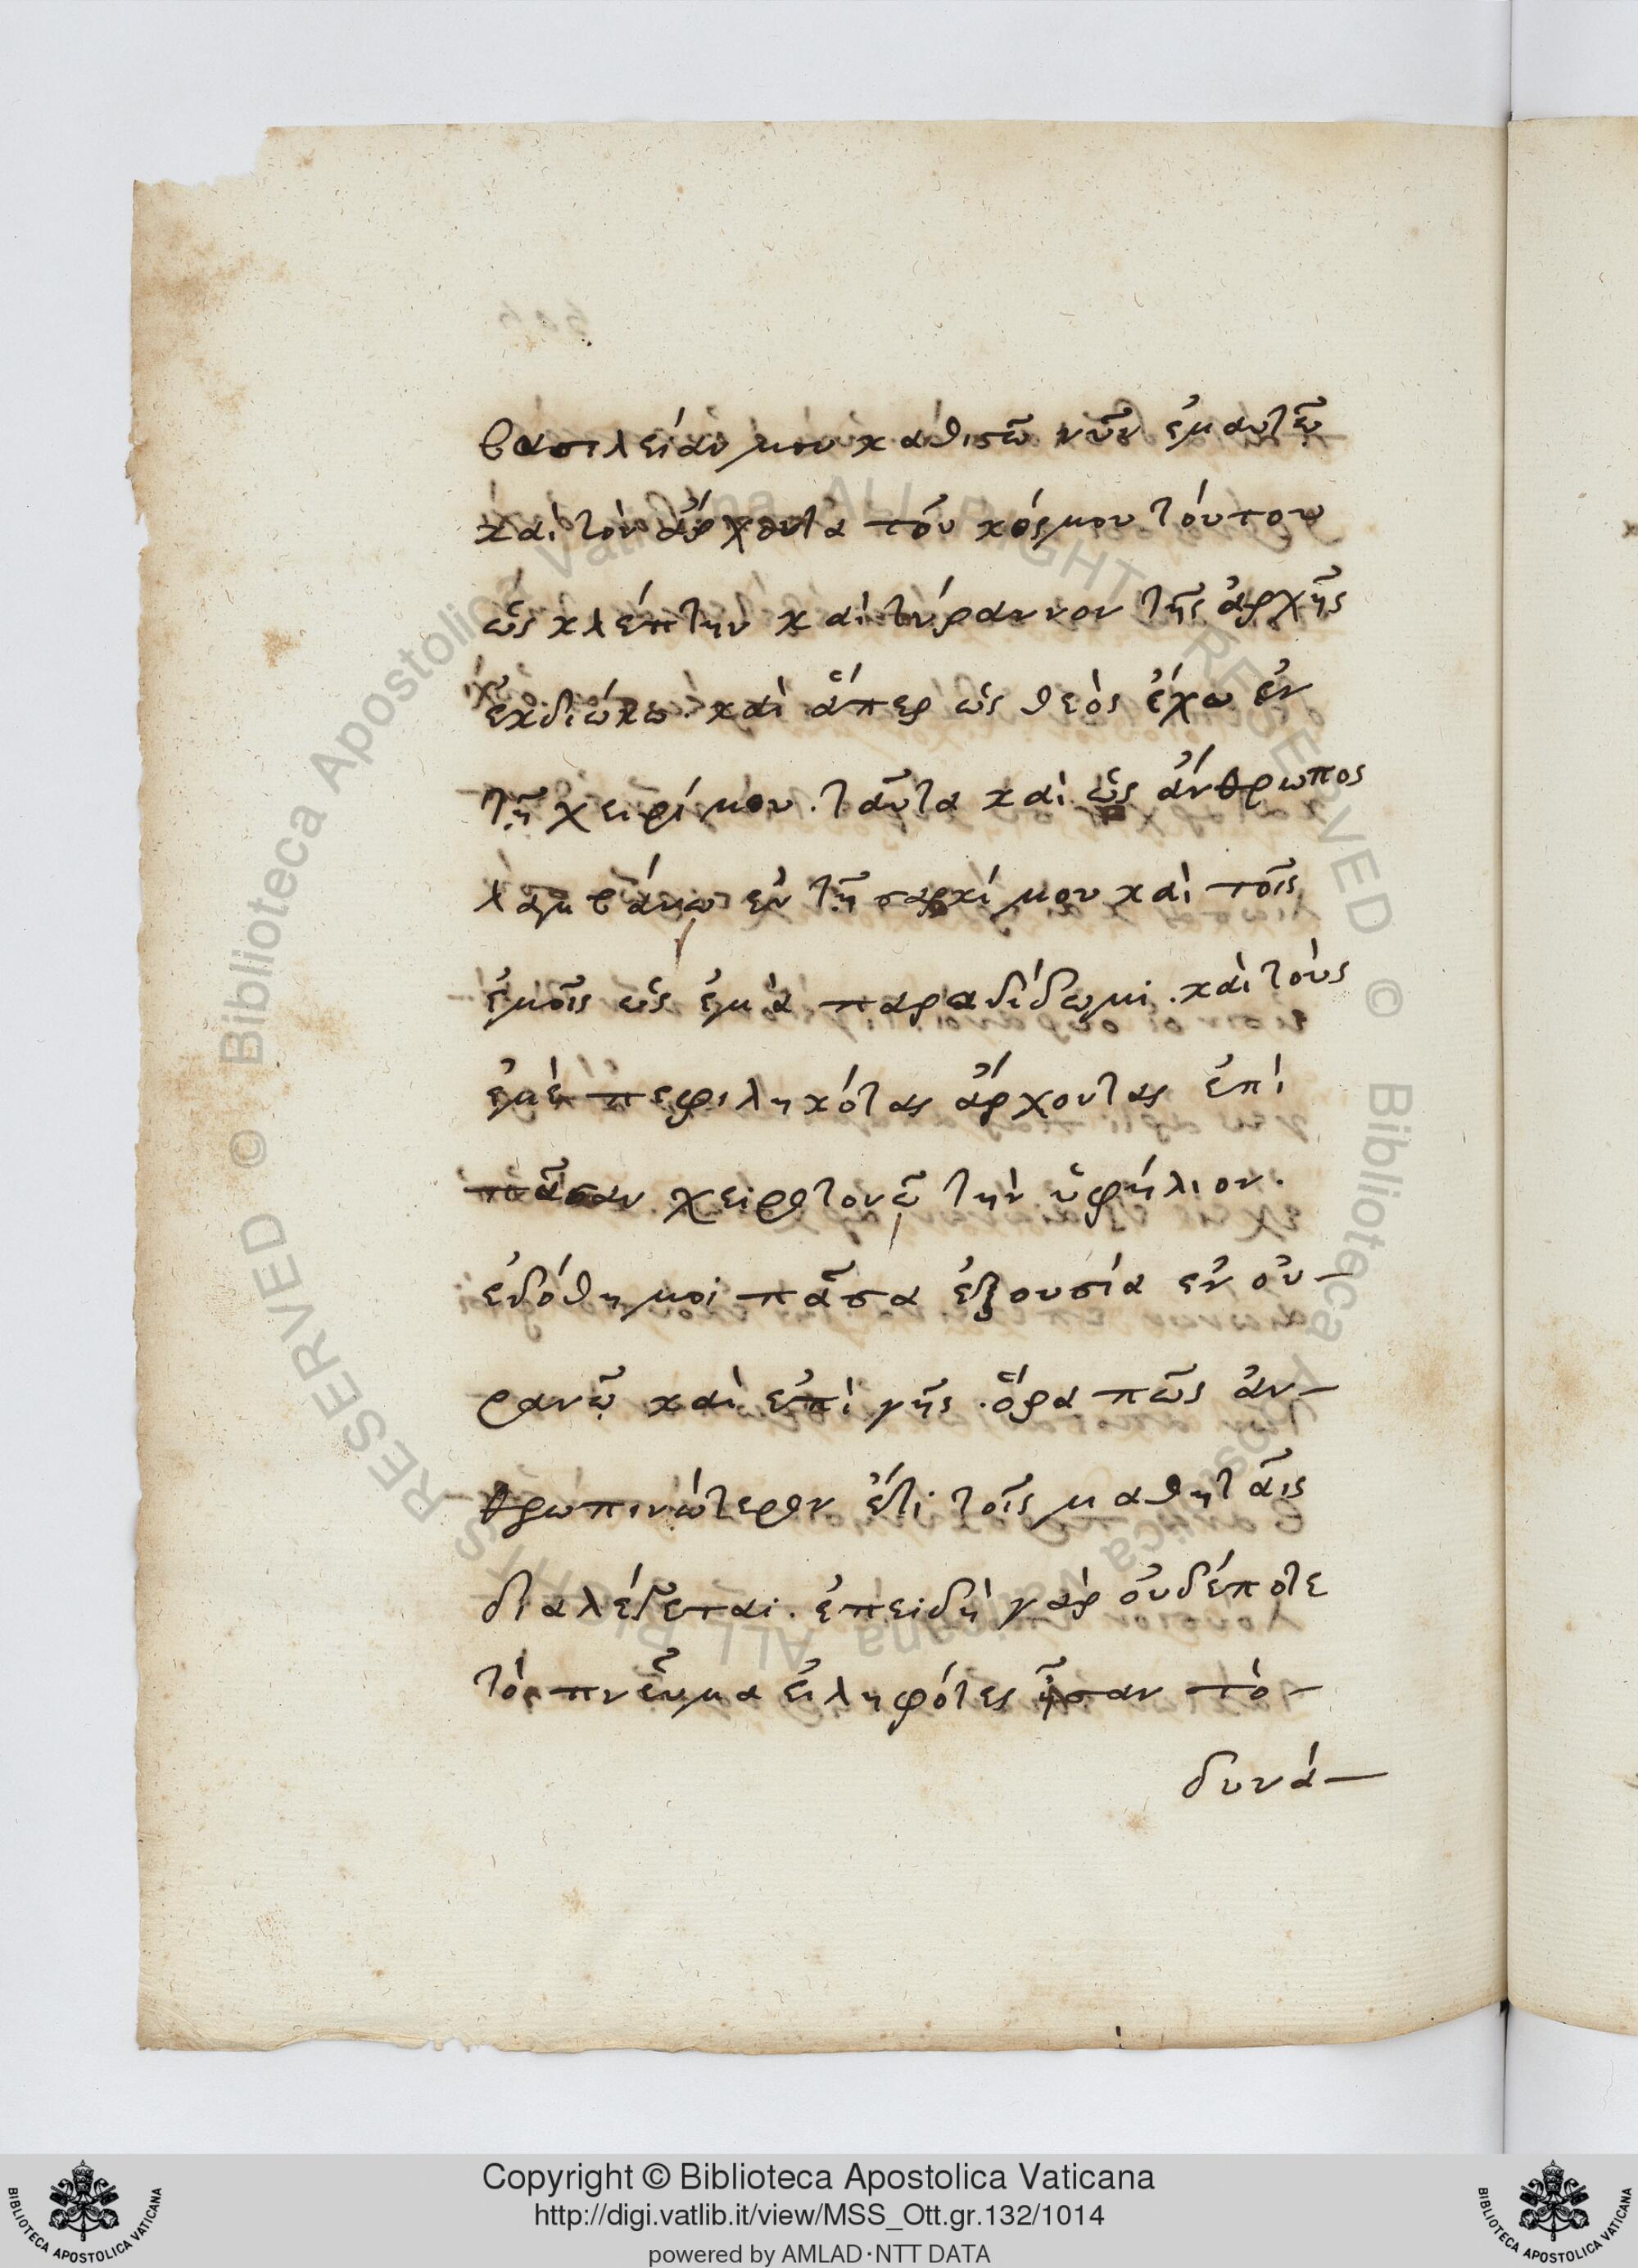 βασιλείαν μου καθιστῶ νῦν ἐμαυτῷ
καὶ τὸν ἄρχοντα τοῦ κόσμου τούτου
ὡς κλέπτην καὶ τύραννον τῆς ἀρχῆς
ἐκδιώκω. καὶ ἅπερ ὡς θεὸς ἔχω ἐν
τῇ χειρί μου. ταῦτα καὶ ὡς ἄνθρωπος
λαμβάνω ἐν τῇ σαρκί μου καὶ τοῖς
ἐμοῖς ὡς ἐμὰ παραδίδωμι. καὶ τοὺς
ἐμὲ πεφιληκότας ἄρχοντας ἐπὶ
πᾶσαν χειροτονῶ τὴν ὑφήλιον.
ἐδόθη μοι πᾶσα ἐξουσία ἐν οὐ-
ρανῷ καὶ ἐπὶ γῆς. ὅρα πῶς ἀν-
θρωπινώτερον ἔτι τοῖς μαθηταῖς
διαλέγεται. ἐπειδὴ γὰρ οὐδέποτε
τὸ πνεῦμα εἰληφότες ἦσαν τὸ-
δυνά-
Copyright © Biblioteca Apostolica Vaticana
http://digi.vatlib.it/view/MSS_Ott.gr.132/1014
powered by AMLAD·NTT DATA
BIBLIOTECA APOSTOLICA VATICANA
BIBLIOTECA APOSTOLICA VATICANA
© Biblioteca Apostolica Vaticana ALL RIGHTS RESERVED © Biblioteca Apostolica Vaticana ALL RIGHTS RESERVED